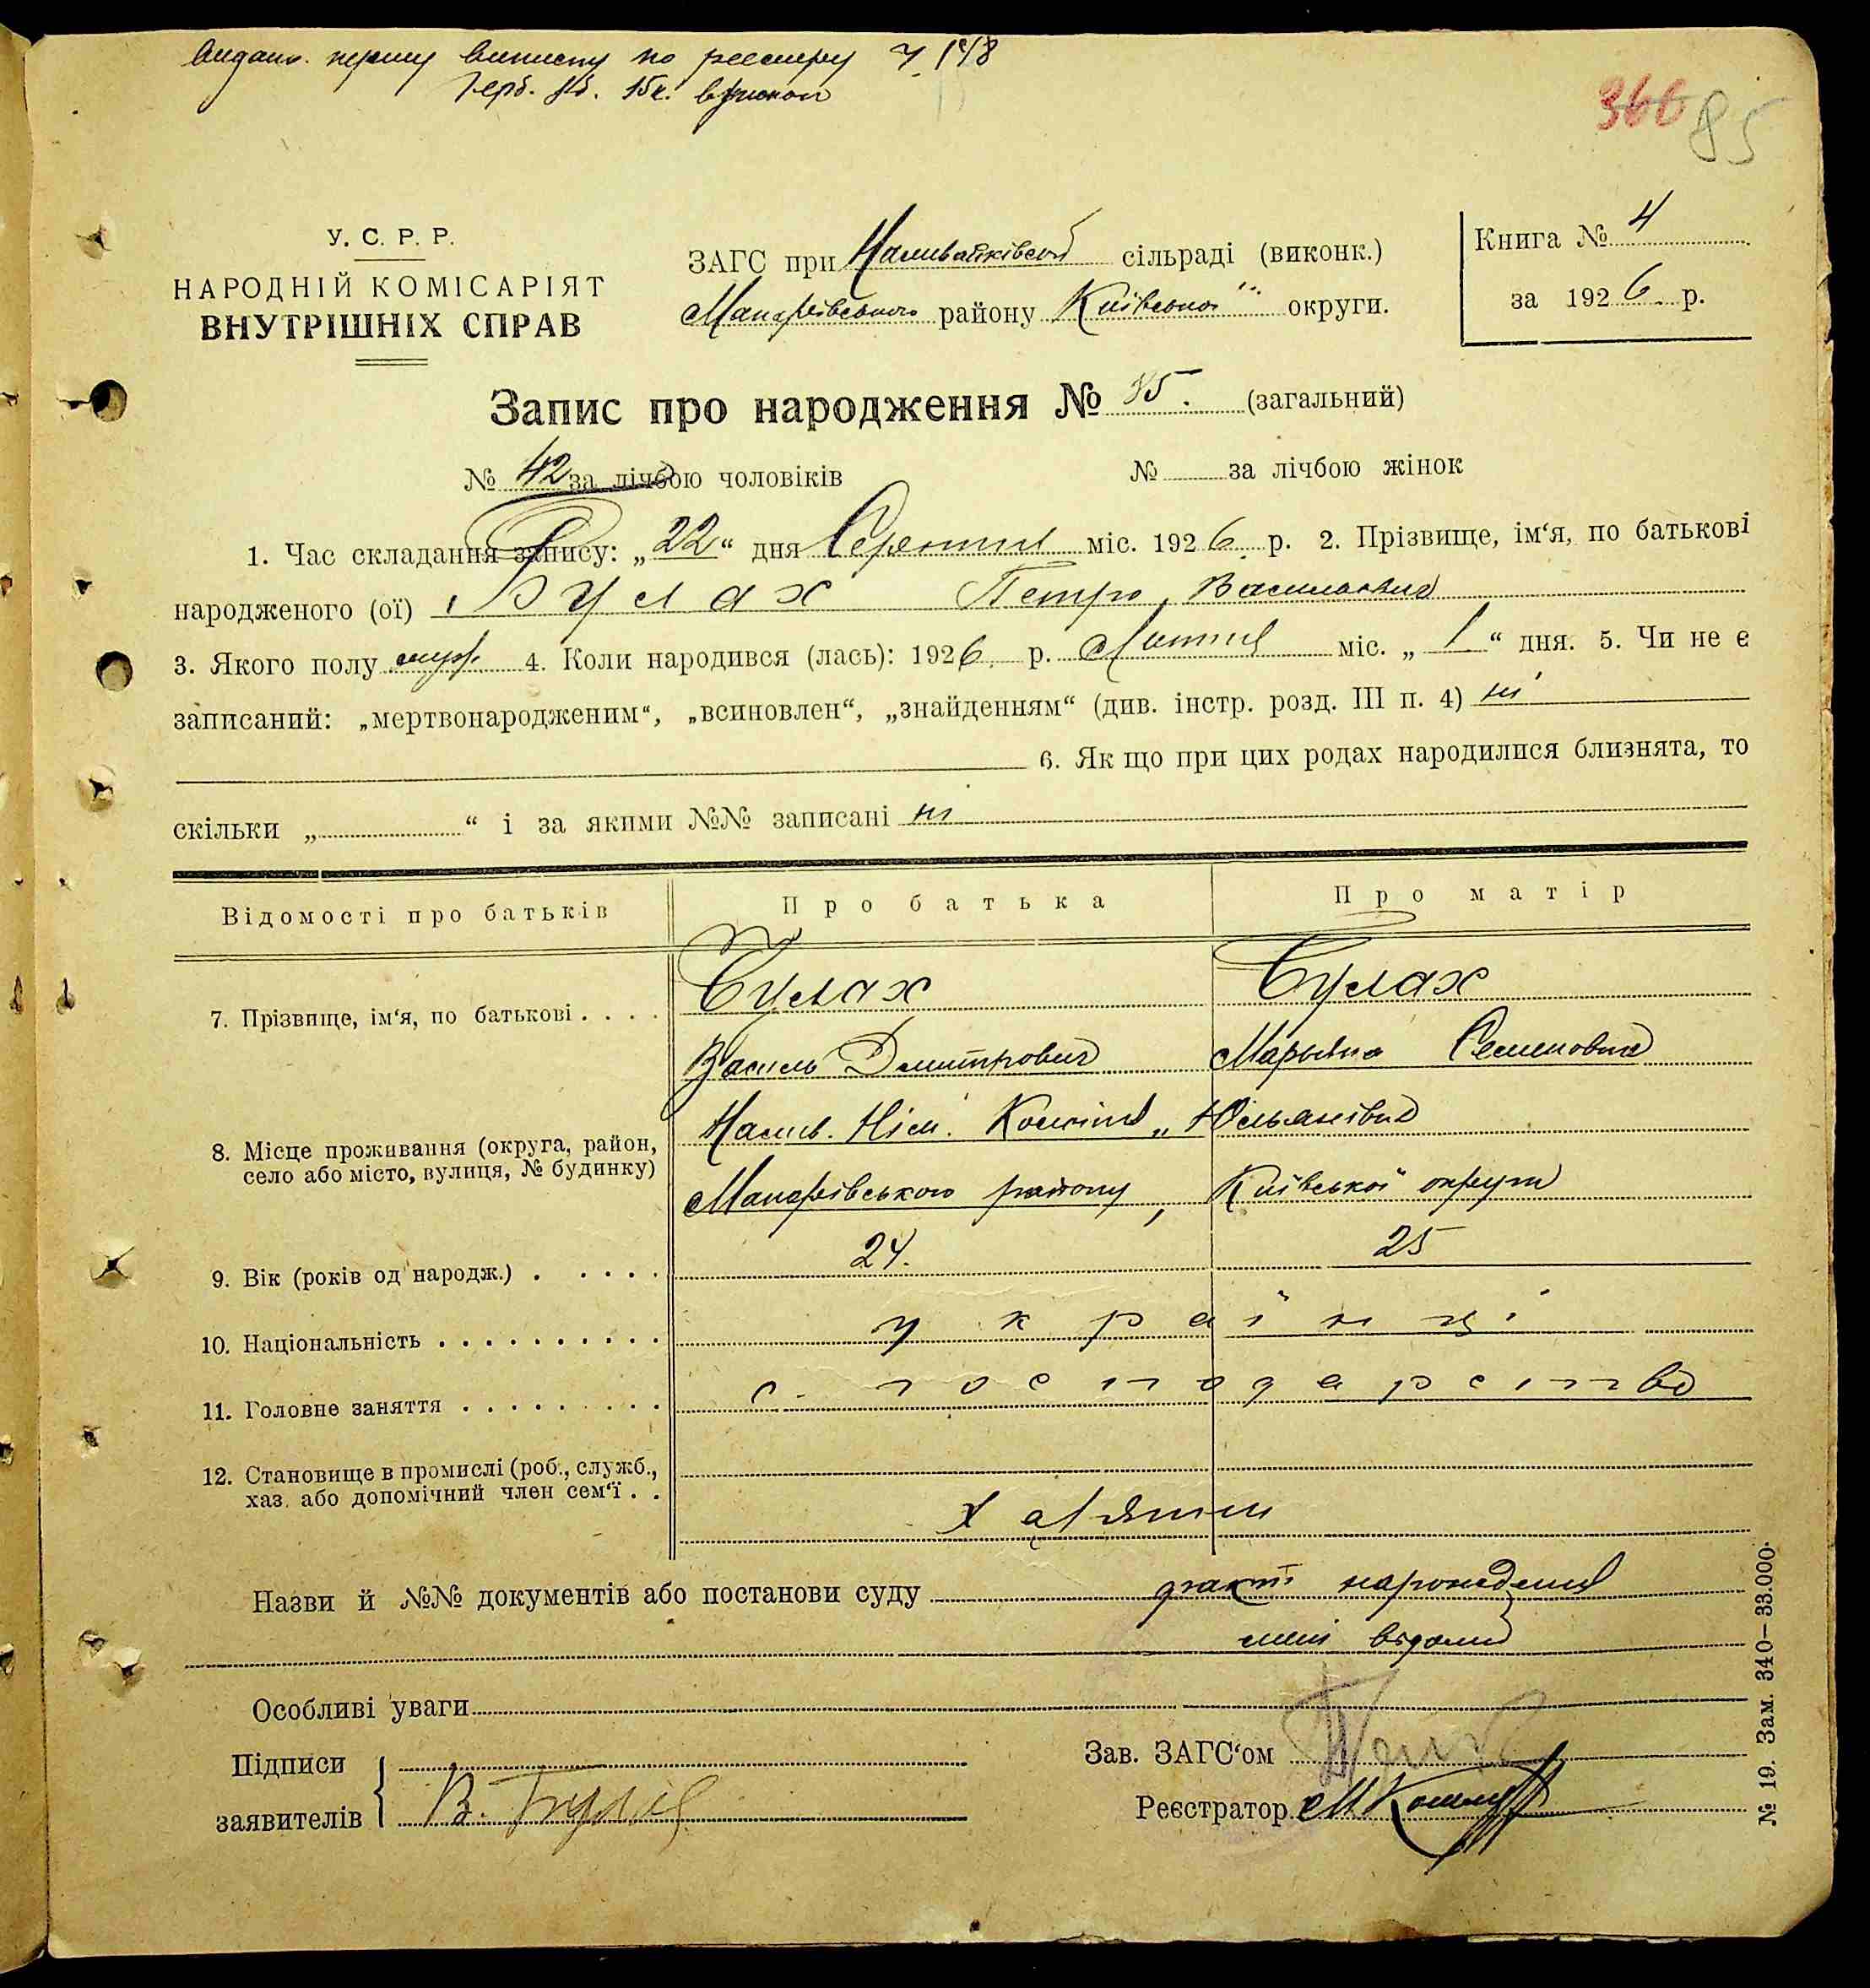 Видано першу виписку по реєстру Ч. 148
Герб. зб. 15 к.
366 85
У. С. Р. Р.
НАРОДНІЙ КОМІСАРІЯТ
ВНУТРІШНІХ СПРАВ
ЗАГС при Наливайківській сільраді (виконк.)
Макарівського району Київської округи.
Книга № 4
за 1926 р.
Запис про народження № 85. (загальний)
№ 42 за лічбою чоловіків № за лічбою жінок
1. Час складання запису: „22“ дня Серпня міс. 1926 р. 2. Прізвище, ім‘я, по батькові
народженого (ої) Булах Петро Васильович
3. Якого полу 4. Коли народився (лась): 1926 р. Липня міс. „1“ дня. 5. Чи не є
записаний: „мертвонародженим“, „всиновлен“, „знайденням“ (див. інстр. розд. III п. 4) ні
6. Як що при цих родах народилися близнята, то
скільки „ “ і за якими №№ записані ні
Відомості про батьків Про батька Про матір
7. Прізвище, ім‘я, по батькові . . . . Булах Булах
Василь Дмитрович Марьяна Семеновна
8. Місце проживання (округа, район, Налив. Нім. Колонія „Юльянівка
село або місто, вулиця, № будинку) Макарівського району, Київської округи
9. Вік (років од народж.) . . . . . 24. 25
10. Національність . . . . . . . . . . українці
11. Головне заняття . . . . . . . . . с. господарство
12. Становище в промислі (роб., служб.,
хаз. або допомічний член сем‘ї . . Хазяїни
Назви й №№ документів або постанови суду факт народження
мені відомий
Особливі уваги
Підписи
заявителів В. Булах
Зав. ЗАГС‘ом
Реєстратор
№ 19. Зам. 340—33.000.